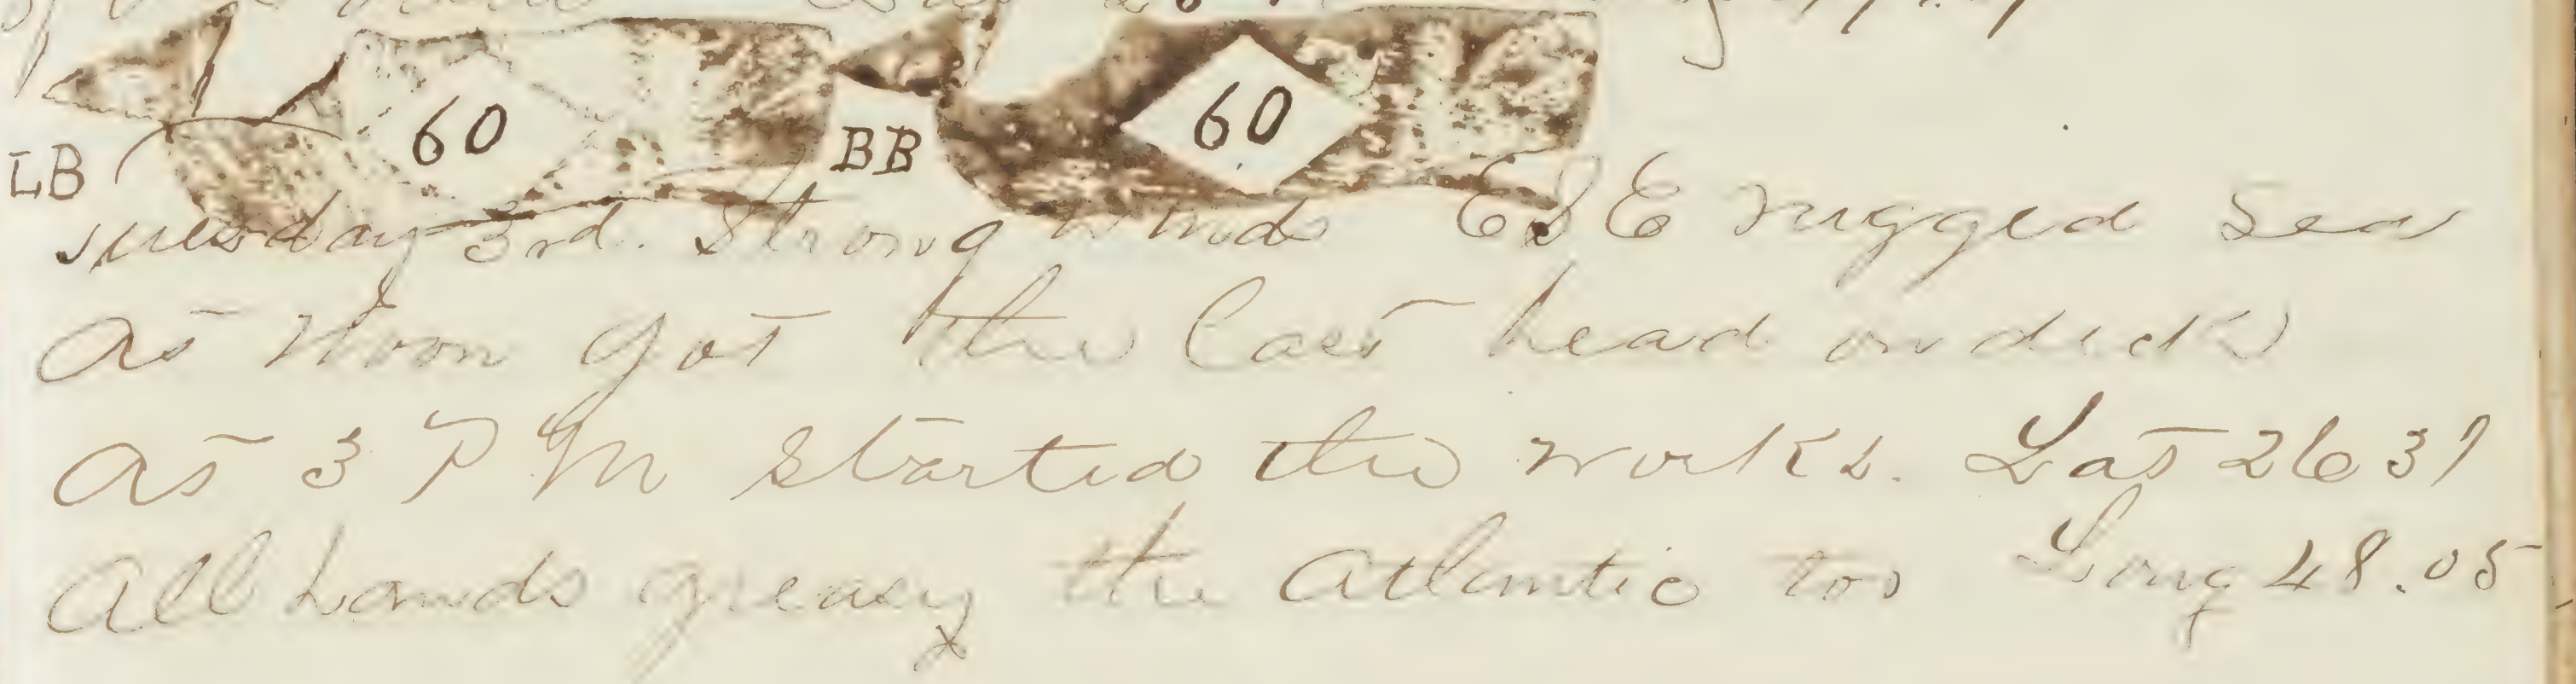 LB 60 BB 60
Tuesday 3rd. Strong winds ESE rugged Sea
At Noon got the last head on deck
At 3 PM started the works. Lat 26 31
All hands greasy the Atlantic too Long 48.05